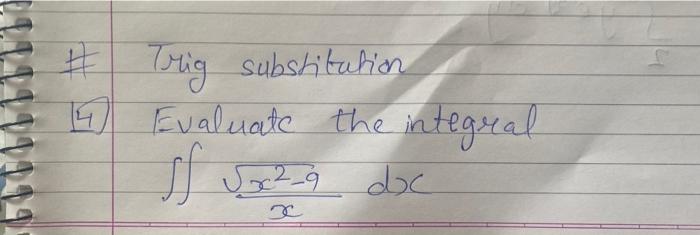 # Trig substitution
4 Evaluate the integral
∬ √(x²-9)/x dx